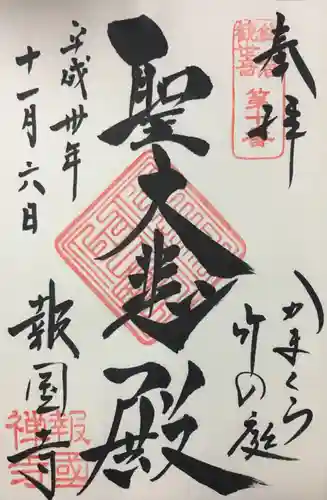 奉拝
かまくら
竹の庭
聖大悲殿
平成卅年
十一月六日
報国寺
報國
禅寺